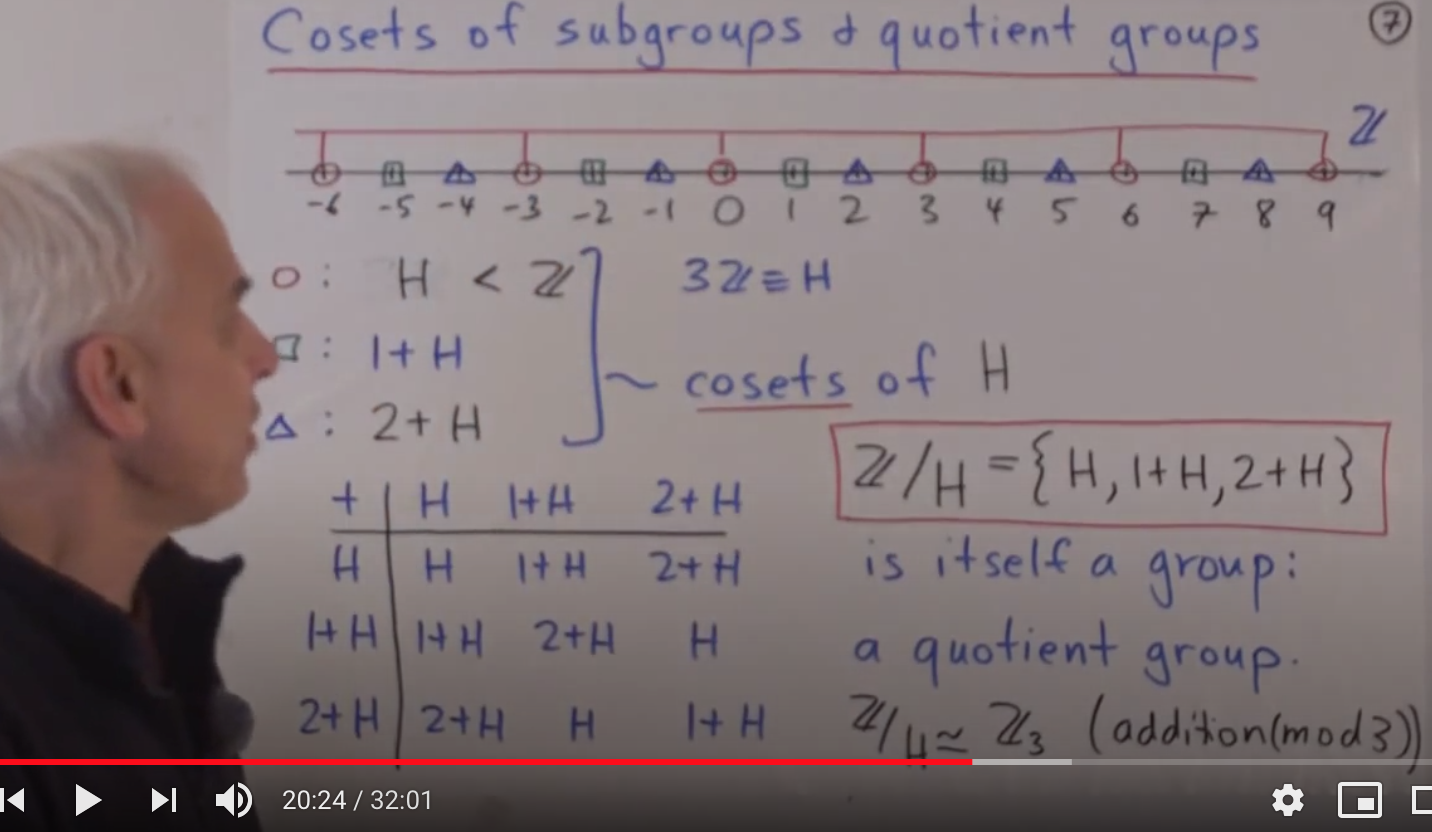 Cosets of subgroups & quotient groups
7
ℤ
-6 -5 -4 -3 -2 -1 0 1 2 3 4 5 6 7 8 9
○ : H < ℤ
3ℤ ≡ H
□ : 1+H
~ cosets of H
△ : 2+H
ℤ/H = {H, 1+H, 2+H}
+ | H 1+H 2+H
H | H 1+H 2+H
is itself a group:
1+H | 1+H 2+H H
a quotient group.
2+H | 2+H H 1+H
ℤ/H ≃ ℤ₃ (addition(mod 3))
20:24 / 32:01